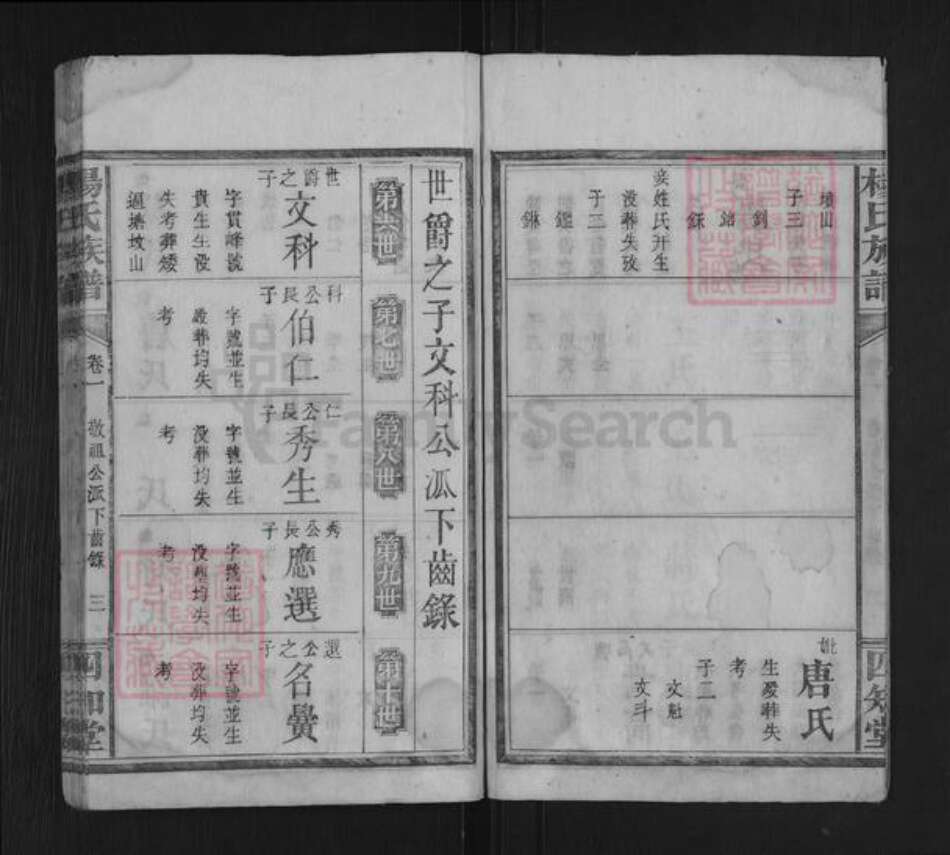 楊氏族譜
四知堂
墳山
子三
釗
鎔
接姓氏并生
沒葬失攷
子三
鑑
妣唐氏
生歿葬失
考
子二
文魁
文斗
世爵之子文科公派下齒錄
第六世
第七世
第八世
第九世
第十世
世爵之子
文科
字貫峰號
貴生生沒
失考葬矮
塘墳山
科公長子
伯仁
字號並生
歿葬均失
考
仁公長子
秀生
字號並生
沒葬均失
考
秀公長子
應選
字號並生
沒葬均失
考
選公之子
名譽
字號並生
沒葬均失
考
楊氏族譜
卷一
敬祖公派下齒錄
三
四知堂
FamilySearch